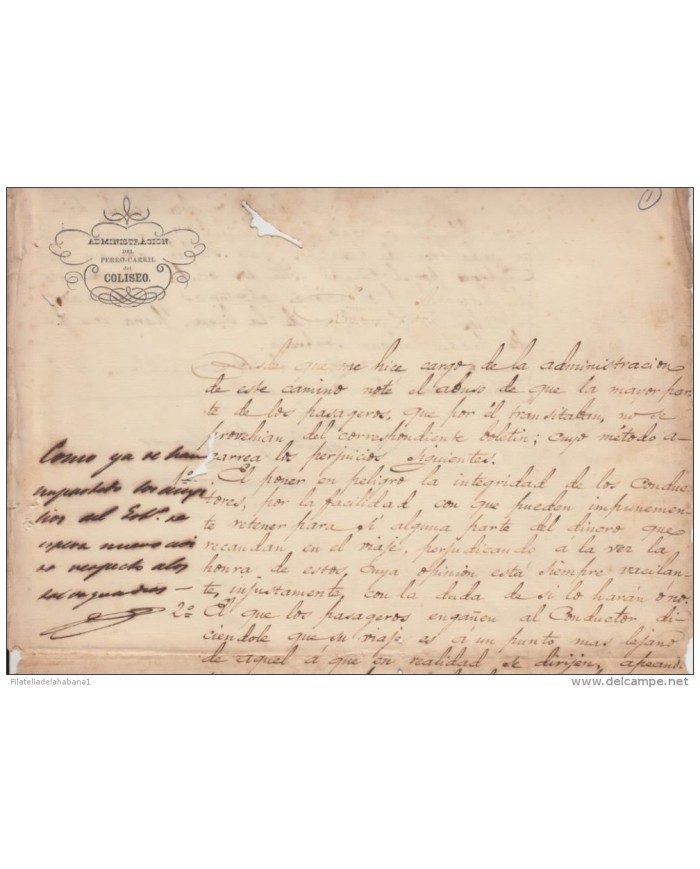 1
ADMINISTRACION
DEL
FERRO-CARRIL
DE
COLISEO.
Desde que me hice cargo de la administracion
de este camino noté el abuso de que la mayor par-
te de los pasageros, que por él transitaban, no se
provehian del correspondiente boletin; cuyo método a-
carrea los perjuicios siguientes.
1º El poner en peligro la integridad de los Conduc-
tores, por la facilidad con que pueden impunemen-
te retener para sí alguna parte del dinero que
recaudan en el viaje, perjudicando á la vez la
honra de estos, cuya opinion está siempre vacilan-
te, injustamente, con la duda de si lo harán ó no.
2º El que los pasageros engañen al Conductor di-
ciendole que su viaje es a un punto mas lejano
de aquel á que en realidad se dirijen, apeando
Como ya se han
al
se
espera nuevo
respecto a los
Filateliadelahabana1
www.delcampe.net